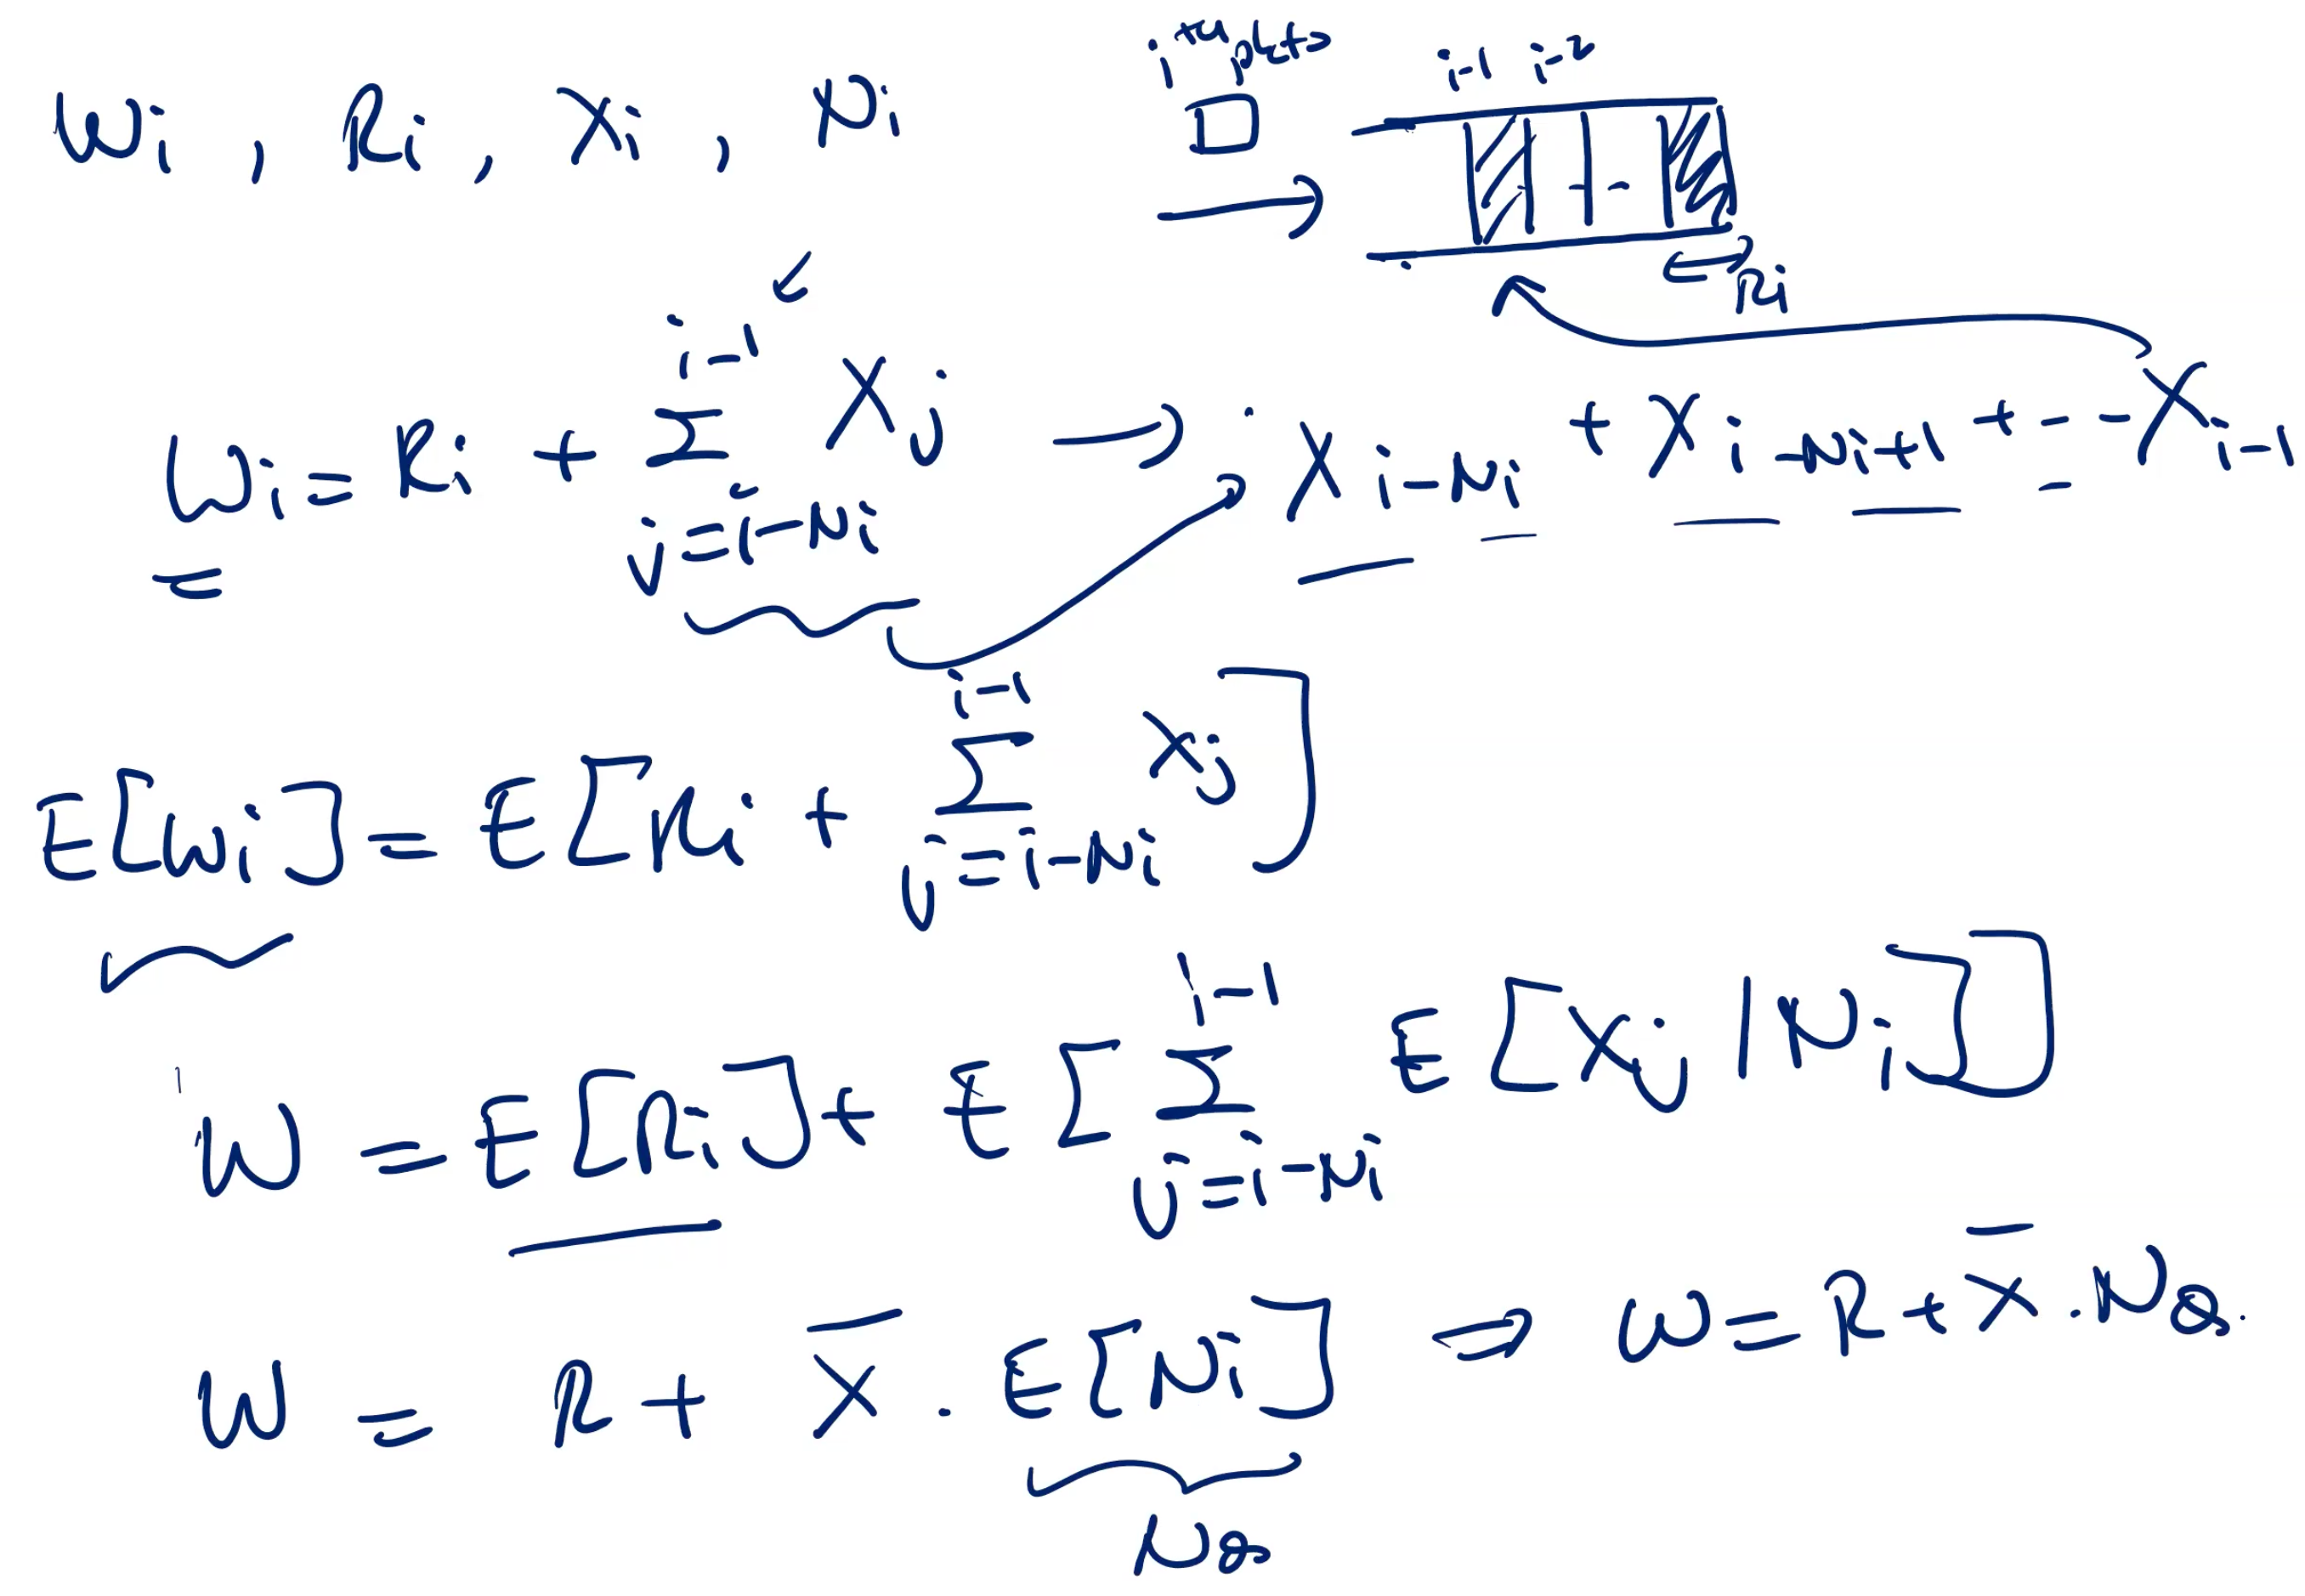 Wi , Ri , Xi , Ni
ith pkt
i-1 i-2
Ri
Wi = Ri + Σ_{j=i-Ni}^{i-1} Xj → X_{i-Ni} + X_{i-Ni+1} + - - X_{i-1}
E[Wi] = E[Ri + Σ_{j=i-Ni}^{i-1} Xj]
W = E[Ri] + E[Σ_{j=i-Ni}^{i-1} E[Xj | Ni]]
W = R + X̄ . E[Ni] ⇒ W = R + X̄ . NQ.
NQ